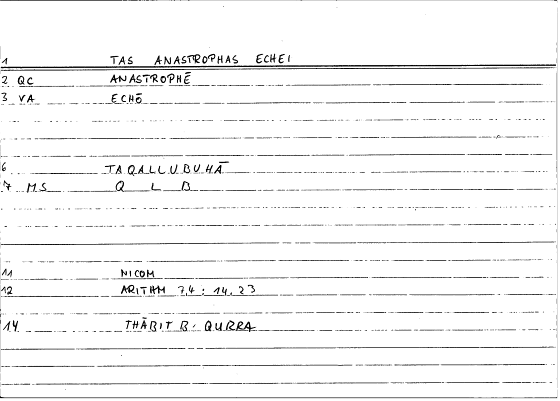 1 TAS ANASTROPHAS ECHEI
2 QC ANASTROPHĒ
3 VA ECHŌ
6 TAQALLUBUHĀ
7 MS Q L B
11 NICOM
12 ARITHM 7,4 : 14.23
14 THĀBIT B. QURRA